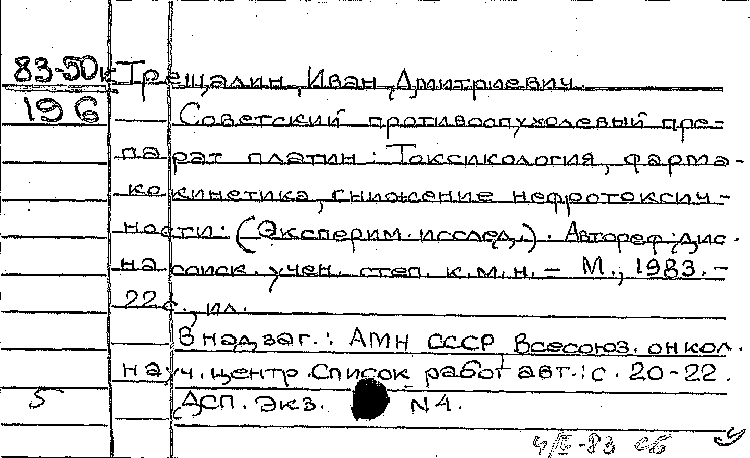 83-50к Трещалин, Иван Дмитриевич.
196 Советский противоопухолевый пре-
парат платин: Токсикология, фарма-
кокинетика, снижение нефротоксич-
ности: (Эксперим. исслед.). Автореф. дис.
на соиск. учен. степ. к.м.н. – М., 1983. –
22с., ил.
В надзаг.: АМН СССР, Всесоюз. онкол.
науч. центр. Список работ авт.: с. 20-22.
5 ДСП. Экз. N4.